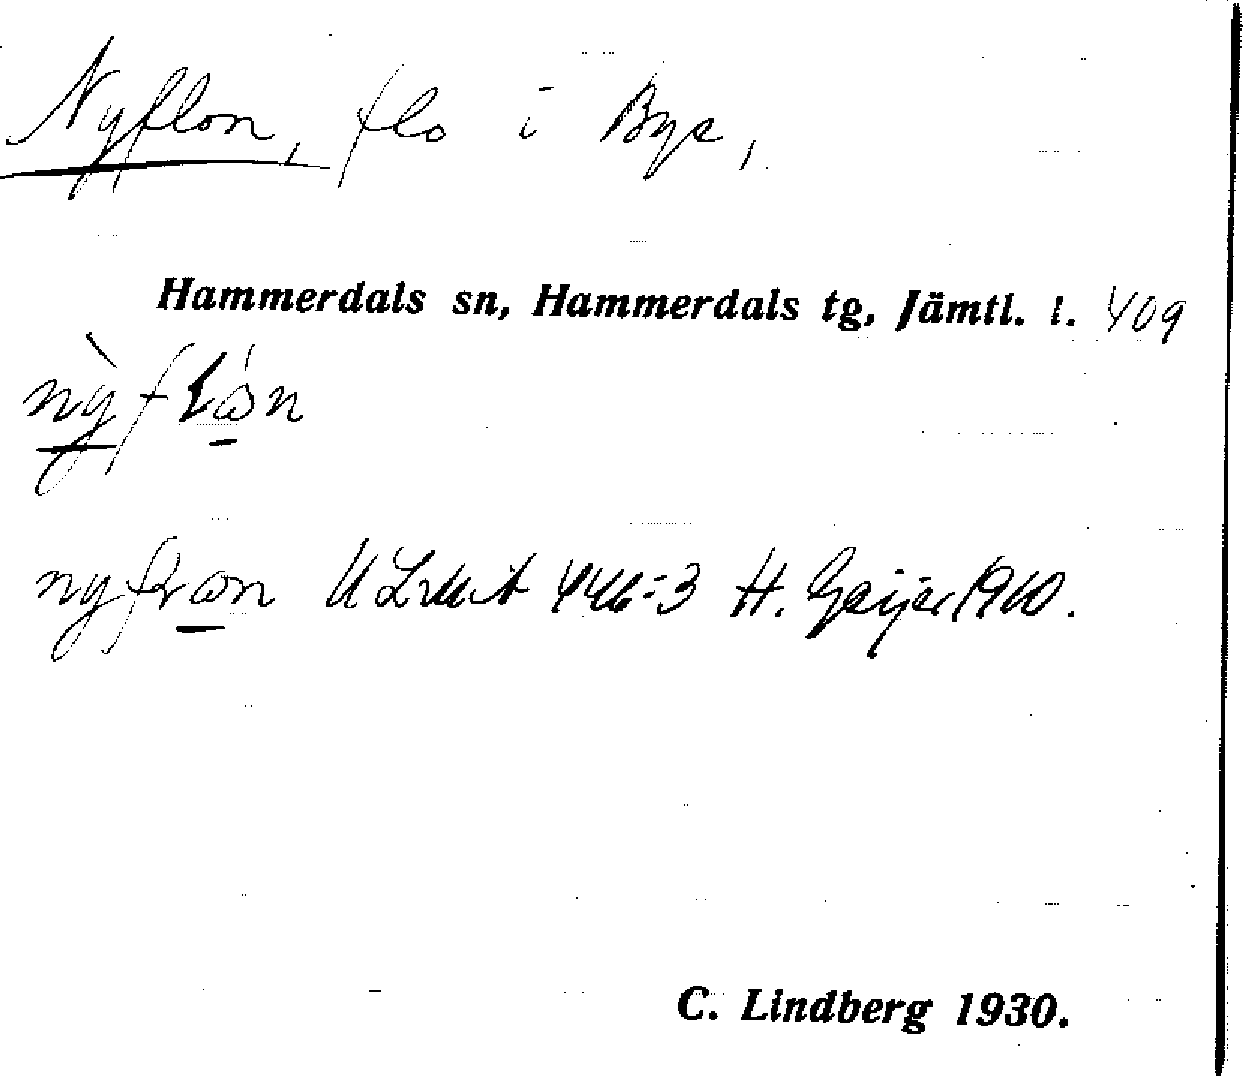 Nyflon, flo i Bye,
Hammerdals sn, Hammerdals tg, Jämtl. l. 409
nỳflòn
nyfron ULMA 446:3 H. Geijer 1910.
C. Lindberg 1930.